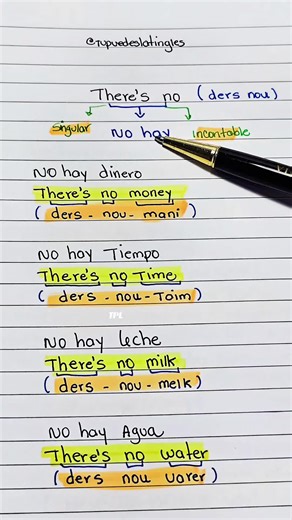 @tupuedeslatingles
There's no (ders nou)
singular No hay incontable
No hay dinero
There's no money
(ders - nou - mani)
No hay Tiempo
There's no Time
(ders - nou - Taim)
No hay Leche
There's no milk
(ders - nou - melk)
No hay Agua
There's no water
(ders nou uorer)